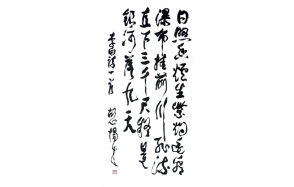 日照香爐生紫烟遥看
瀑布挂前川飛流
直下三千尺疑是
銀河落九天
李白詩一首